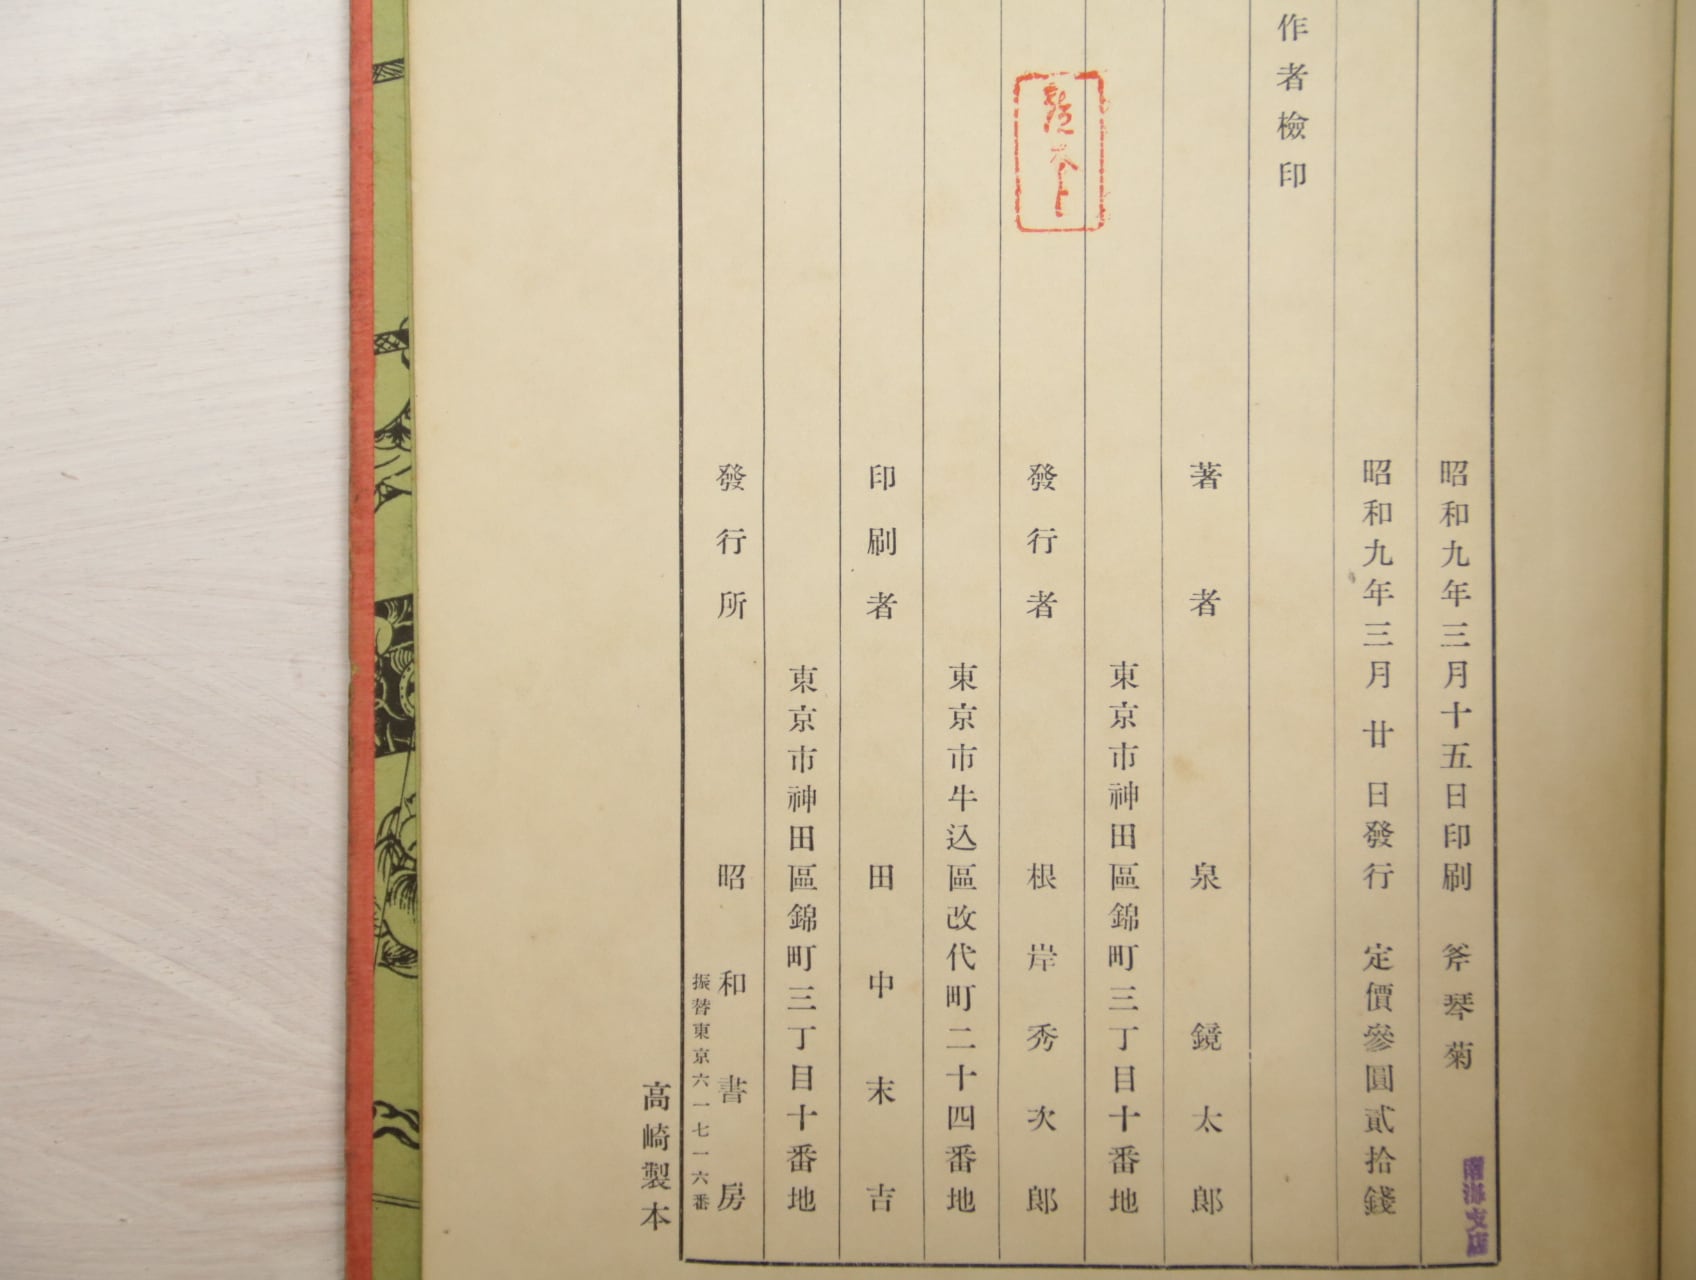 昭和九年三月十五日印刷 斧琴菊
昭和九年三月廿日發行 定價參圓貳拾錢
作者檢印
著者 泉鏡太郎
東京市神田區錦町三丁目十番地
發行者 根岸秀次郎
東京市牛込區改代町二十四番地
印刷者 田中末吉
東京市神田區錦町三丁目十番地
發行所 昭和書房
振替東京六一七一六番
高崎製本